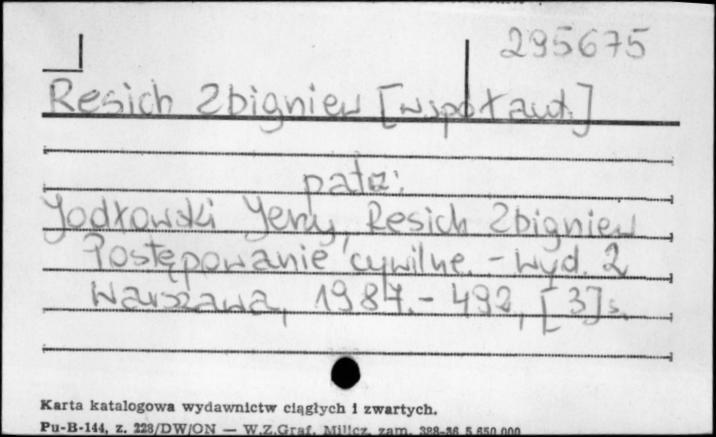 295675
Resich Zbigniew [współaut.]
patrz:
Jodłowski Jerzy, Resich Zbigniew
Postępowanie cywilne. - wyd. 2
Warszawa, 1987. - 492, [3] s.
Karta katalogowa wydawnictw ciągłych i zwartych.
Pu-B-144, z. 228/DW/ON — W.Z.Graf. Milicz, zam. 388-86 5.650.000